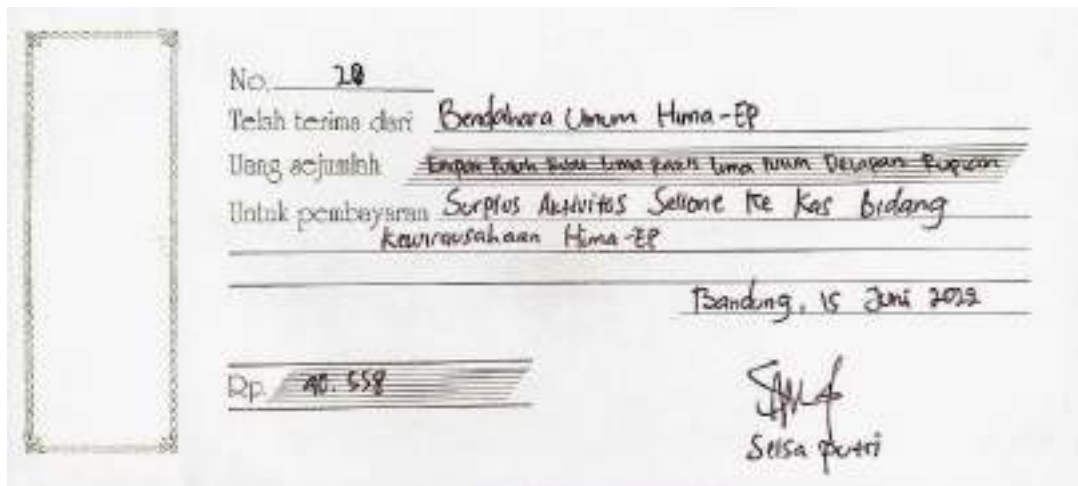 No. 20
Telah terima dari Bendahara Umum Hima-EP
Uang sejumlah Empat Puluh Ribu Lima Ratus Lima Puluh Delapan Rupiah
Untuk pembayaran Surplus Aktivitas Sellone Ke Kas Bidang
Kewirausahaan Hima-EP
Bandung, 15 Juni 2022
Rp. 40.558
Selsa Putri